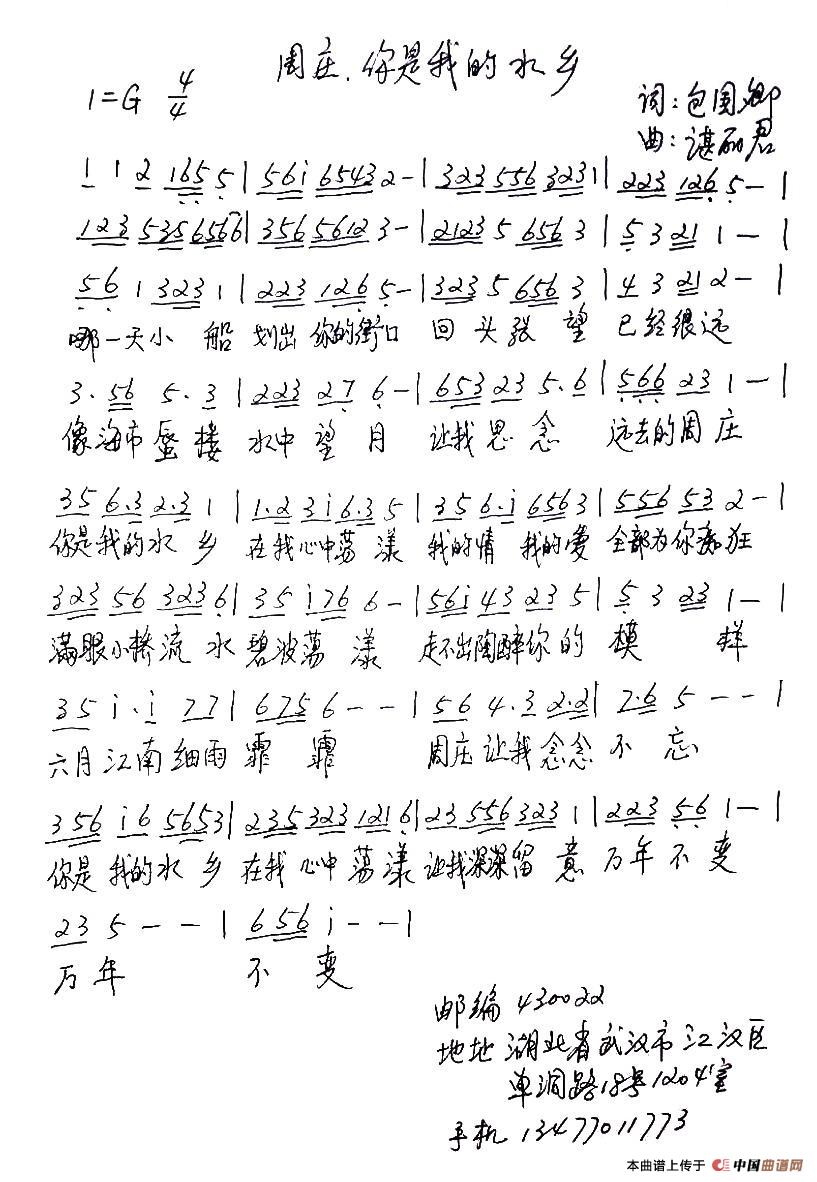 周庄.你是我的水乡
1=G 4/4
词:包国卿
曲:谌丽君
1 1 2 165 5 | 561 6543 2 - | 323 556 323 1 | 223 126 5 - |
123 535 6566 | 356 5612 3 - | 2123 5 656 3 | 5 3 21 1 - |
56 1 323 1 | 223 126 5 - | 323 5 656 3 | 4 3 21 2 - |
哪一天小船 划出你的街口 回头张望 已经很远
3. 56 5. 3 | 223 27 6 - | 653 23 5. 6 | 566 23 1 - |
像海市蜃楼 水中望月 让我思念 远去的周庄
35 6.3 2.3 1 | 1.2 3i 6.3 5 | 35 6.i 656 3 | 556 53 2 - |
你是我的水乡 在我心中荡漾 我的情 我的爱 全部为你痴狂
323 56 323 6 | 35 i76 6 - | 56i 43 23 5 | 5 3 23 1 - |
满眼小桥流水 碧波荡漾 走不出陶醉你的模样
35 i. i 77 | 675 6 - - | 56 4.3 2.2 | 7.6 5 - - |
六月江南细雨霏霏 周庄让我念念不忘
356 i6 5653 | 235 323 121 6 | 23 556 323 1 | 223 56 1 - |
你是我的水乡 在我心中荡漾 让我深深留意 万年不变
23 5 - - | 656 i - - |
万年 不变
邮编 430022
地址 湖北省武汉市江汉区
单洞路18号1204室
手机 13477011773
本曲谱上传于 中国曲谱网